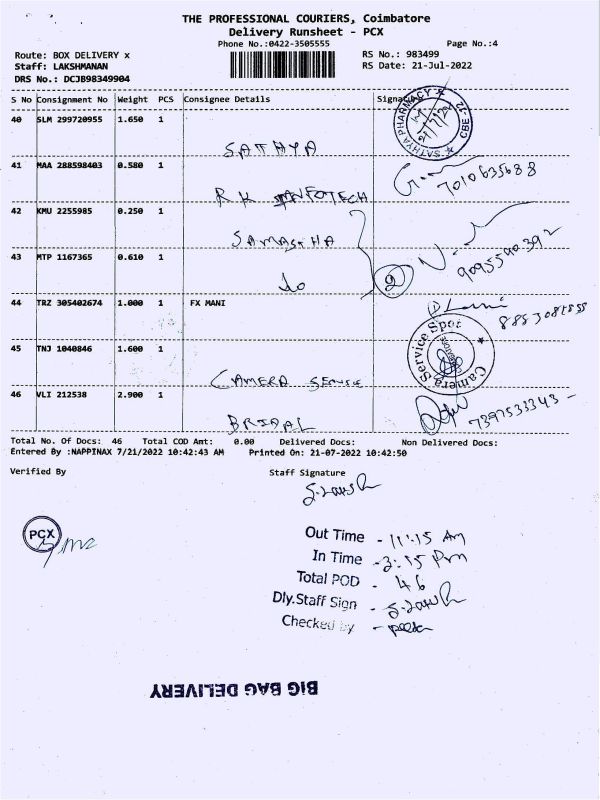 THE PROFESSIONAL COURIERS, Coimbatore
Delivery Runsheet - PCX
Phone No.:0422-3505555
Page No.:4
Route: BOX DELIVERY x
Staff: LAKSHMANAN
DRS No.: DCJB98349904
RS No.: 983499
RS Date: 21-Jul-2022
S No Consignment No Weight PCS Consignee Details Signature
40 SLM 299720955 1.650 1
SATHYA
SATHYA PHARMACY CBE-12
21/7/22
41 MAA 288598403 0.580 1
RK INFOTECH
7010635688
42 KMU 2255985 0.250 1
SAMASTHA
43 MTP 1167365 0.610 1
do
2
9095590392
44 TRZ 305402674 1.000 1 FX MANI
45 TNJ 1040846 1.600 1
CAMERA SERVICE
Camera Service Spot
46 VLI 212538 2.900 1
BRIDAL
7397533343
Total No. Of Docs: 46 Total COD Amt: 0.00 Delivered Docs: Non Delivered Docs:
Entered By :NAPPINAX 7/21/2022 10:42:43 AM Printed On: 21-07-2022 10:42:50
Verified By
Staff Signature
PCX
Out Time - 11:15 AM
In Time - 3:15 Pm
Total POD - 46
Dly.Staff Sign -
Checked by -
BIG BAG DELIVERY